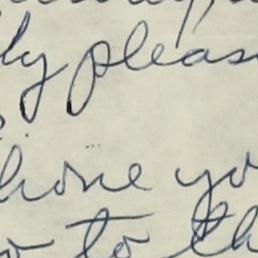 ly pleas
hone yo
to th